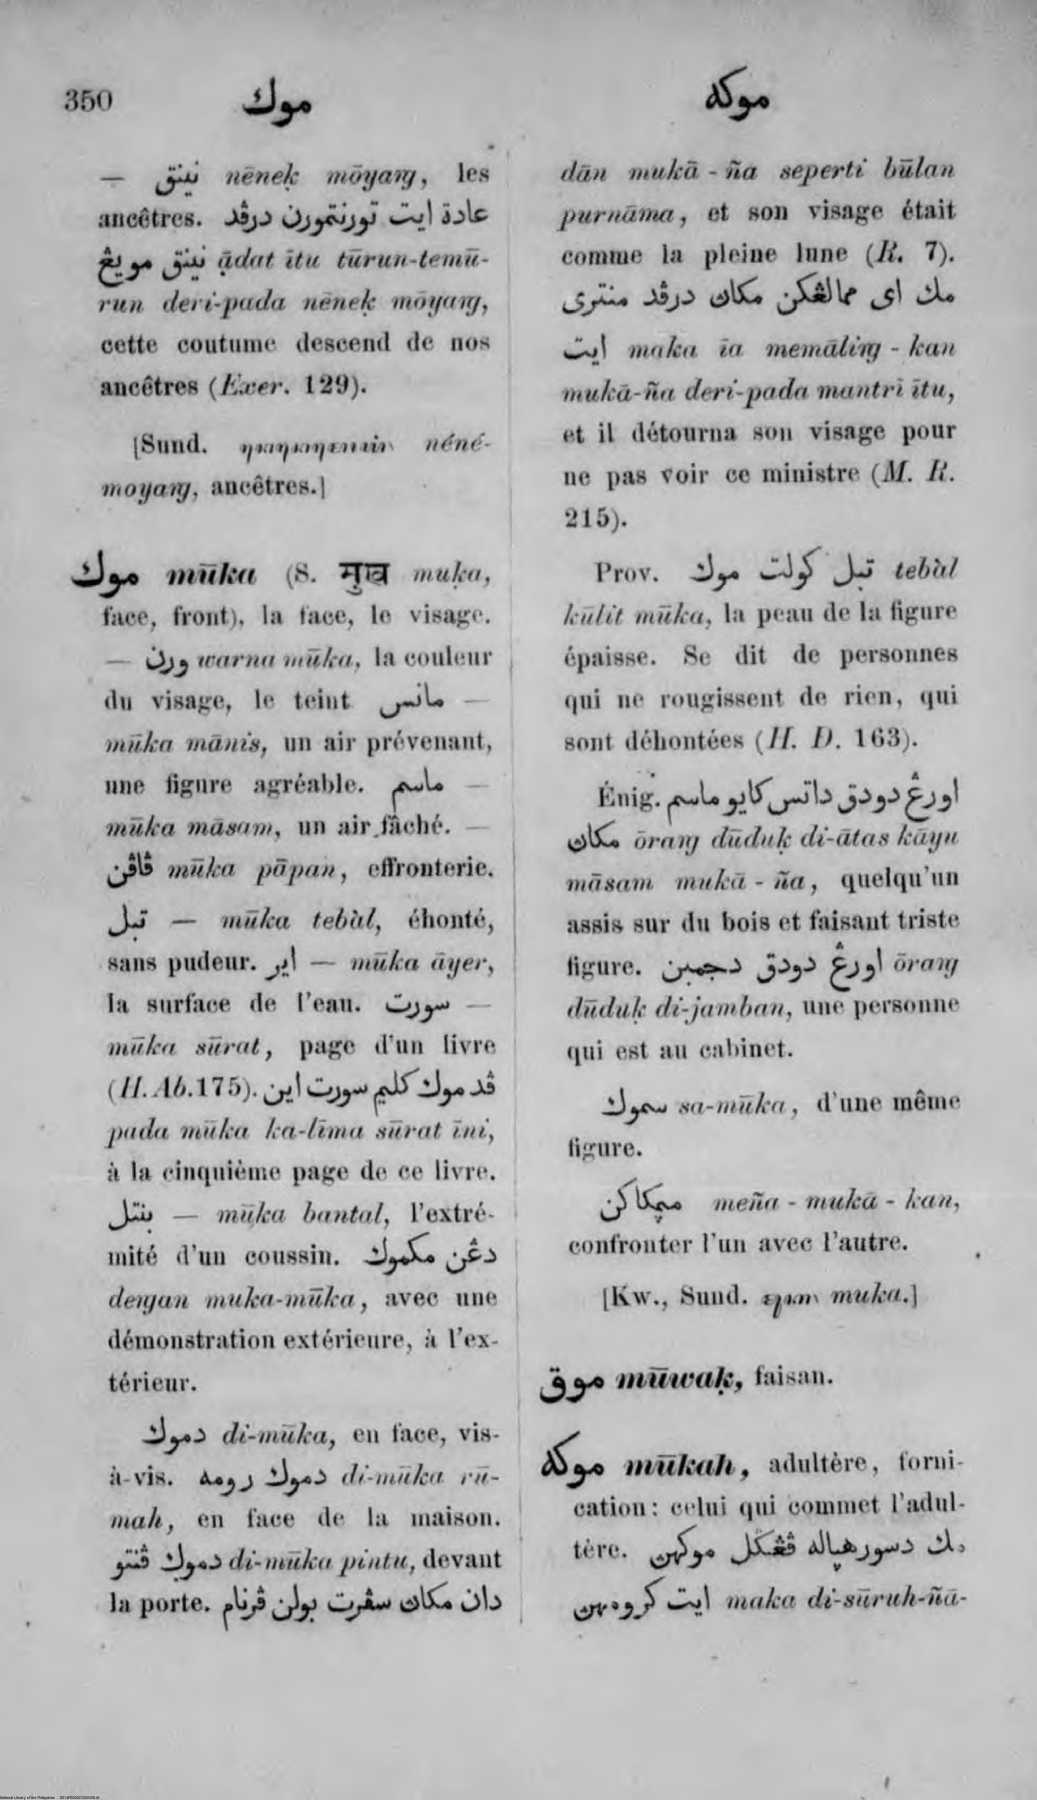 350 موك موكه
— نينق nēneḳ mōyaṃ, les
ancêtres. عادة ايت تورنتمورن درڤد
نينق مويڠ ạ̄dat ītu tūrun-temū-
run deri-pada nēneḳ mōyaṃ,
cette coutume descend de nos
ancêtres (Exer. 129).
[Sund. néné-
moyaṃ, ancêtres.]
موك mūka (S. मुख muḳa,
face, front), la face, le visage.
— ورن warna mūka, la couleur
du visage, le teint مانس —
mūka mānis, un air prévenant,
une figure agréable. ماسم —
mūka māsam, un air fâché. —
ڤاڤن mūka pāpan, effronterie.
تبل — mūka tebàl, éhonté,
sans pudeur. اير — mūka āyer,
la surface de l'eau. سورت —
mūka sūrat, page d'un livre
(H. Ab. 175). ڤد موك كليم سورت اين
pada mūka ka-līma sūrat īni,
à la cinquième page de ce livre.
بنتل — mūka bantal, l'extré-
mité d'un coussin. دڠن مكموك
deṃan muka-mūka, avec une
démonstration extérieure, à l'ex-
térieur.
دموك di-mūka, en face, vis-
à-vis. دموك رومه di-mūka rū-
mah, en face de la maison.
دموك ڤنتو di-mūka pintu, devant
la porte. دان مكان سڤرت بولن ڤرنام
dān mukā-ña seperti būlan
purnāma, et son visage était
comme la pleine lune (R. 7).
مك اى ممالڠكن مكان درڤد منترى
ايت maka īa memāliṃ-kan
mukā-ña deri-pada mantrī ītu,
et il détourna son visage pour
ne pas voir ce ministre (M. R.
215).
Prov. تبل كولت موك tebàl
kūlit mūka, la peau de la figure
épaisse. Se dit de personnes
qui ne rougissent de rien, qui
sont déhontées (H. D. 163).
Énig. اورڠ دودق داتس كايو ماسم
مكان ōraṃ dūduḳ di-ātas kāyu
māsam mukā-ña, quelqu'un
assis sur du bois et faisant triste
figure. اورڠ دودق دجمبن ōraṃ
dūduḳ di-jamban, une personne
qui est au cabinet.
سموك sa-mūka, d'une même
figure.
meña-mukā-kan,
confronter l'un avec l'autre.
[Kw., Sund. muka.]
موق mūwaḳ, faisan.
موكه mūkah, adultère, forni-
cation: celui qui commet l'adul-
tère. مك دسورهڽاله ڤڠڬل موكهن
ايت maka di-sūruh-ñā-